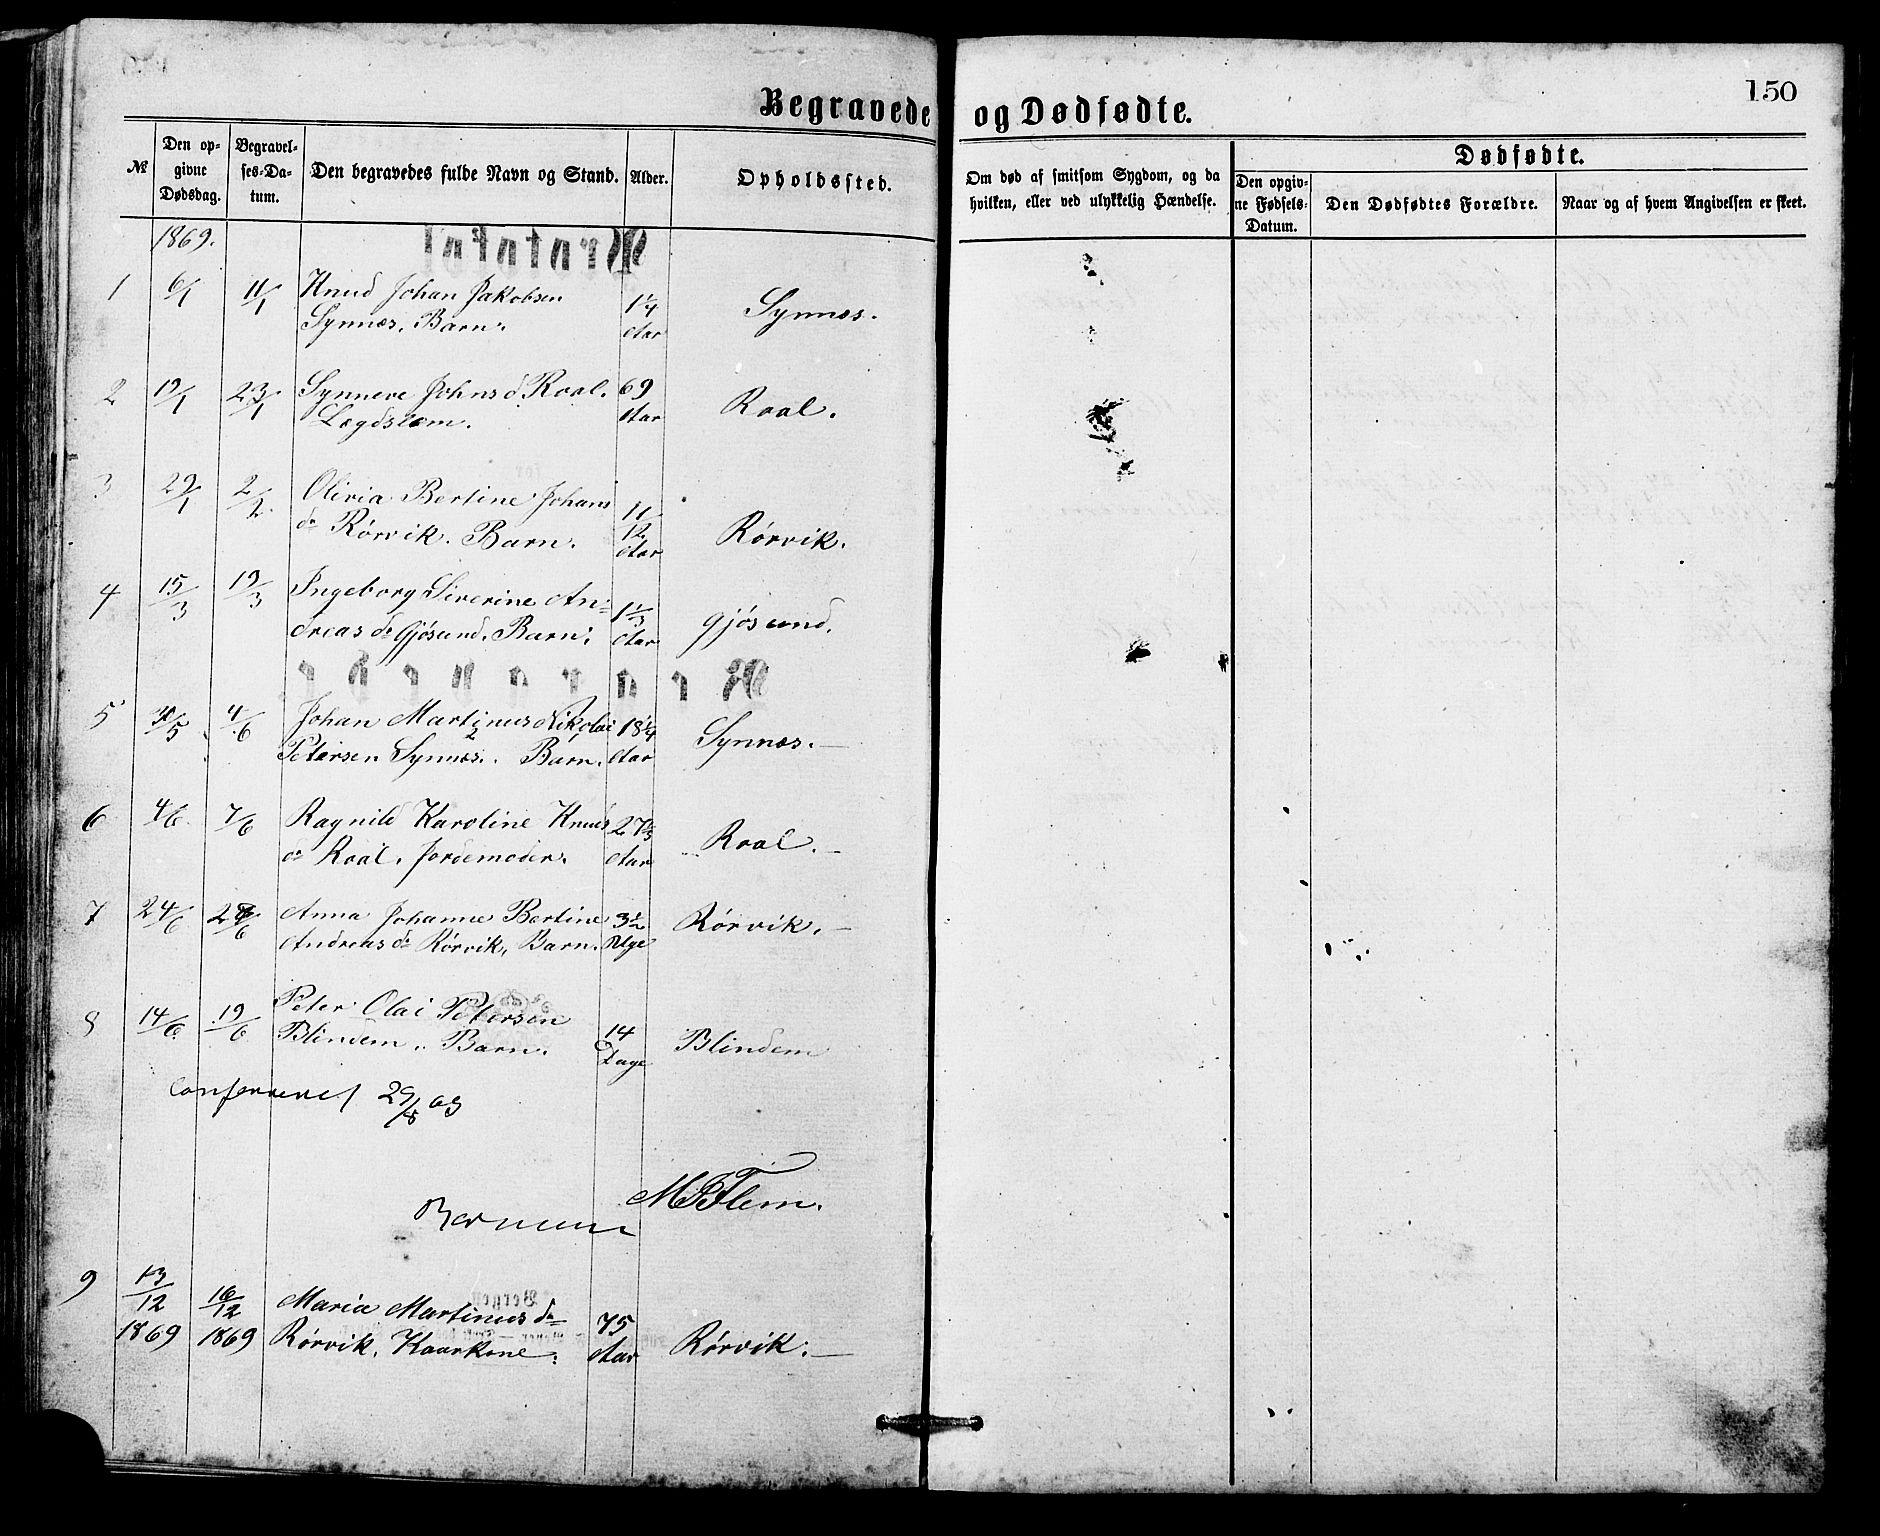 150
Begravede og Dødfødte.
№ Den opgivne Dødsdag. Begravelses-Datum. Den begravedes fulde Navn og Stand. Alder. Opholdssted. Om død af smitsom Sygdom, og da hvilken, eller ved ulykkelig Hændelse. Dødfødte. Den opgivne Fødsels-Datum. Den Dødfødtes Forældre. Naar og af hvem Angivelsen er skeet.
1869.
1 6/1 11/1 Knud Johan Jakobsen 1 1/4
Synnæs. Barn. Aar Synnæs.
2 19/1 23/1 Synneve Johns d Roal. 69
Lægdslem. Aar Roal.
3 29/1 2/2 Olivia Bertine Johans 11/12
dr Rörvik. Barn. Aar Rörvik.
4 15/3 19/3 Ingeborg Siverine An= 1 1/3
dreas dr Gjösund. Barn. Aar Gjösund.
5 31/5 4/6 Johan Martinus Nikolai 18 1/4
Petersen Synnæs. Barn. Aar Synnæs.
6 4/6 7/6 Ragnild Karoline Knuds 27 1/3
dr Roal. Jordemoder. Aar Roal.
7 24/6 6 Anna Johanne Bertine 3 1/2
Andreas dr Rörvik, Barn. Uge Rörvik.
8 14/6 19/6 Peter Olai Petersen 14
Blindem. Barn. Dage Blindem
Confereret 29/8 69
M P Flem.
9 13/12 1869 16/12 1869 Maria Martinus dr 75
Rörvik, Kaarkone. Aar Rörvik.